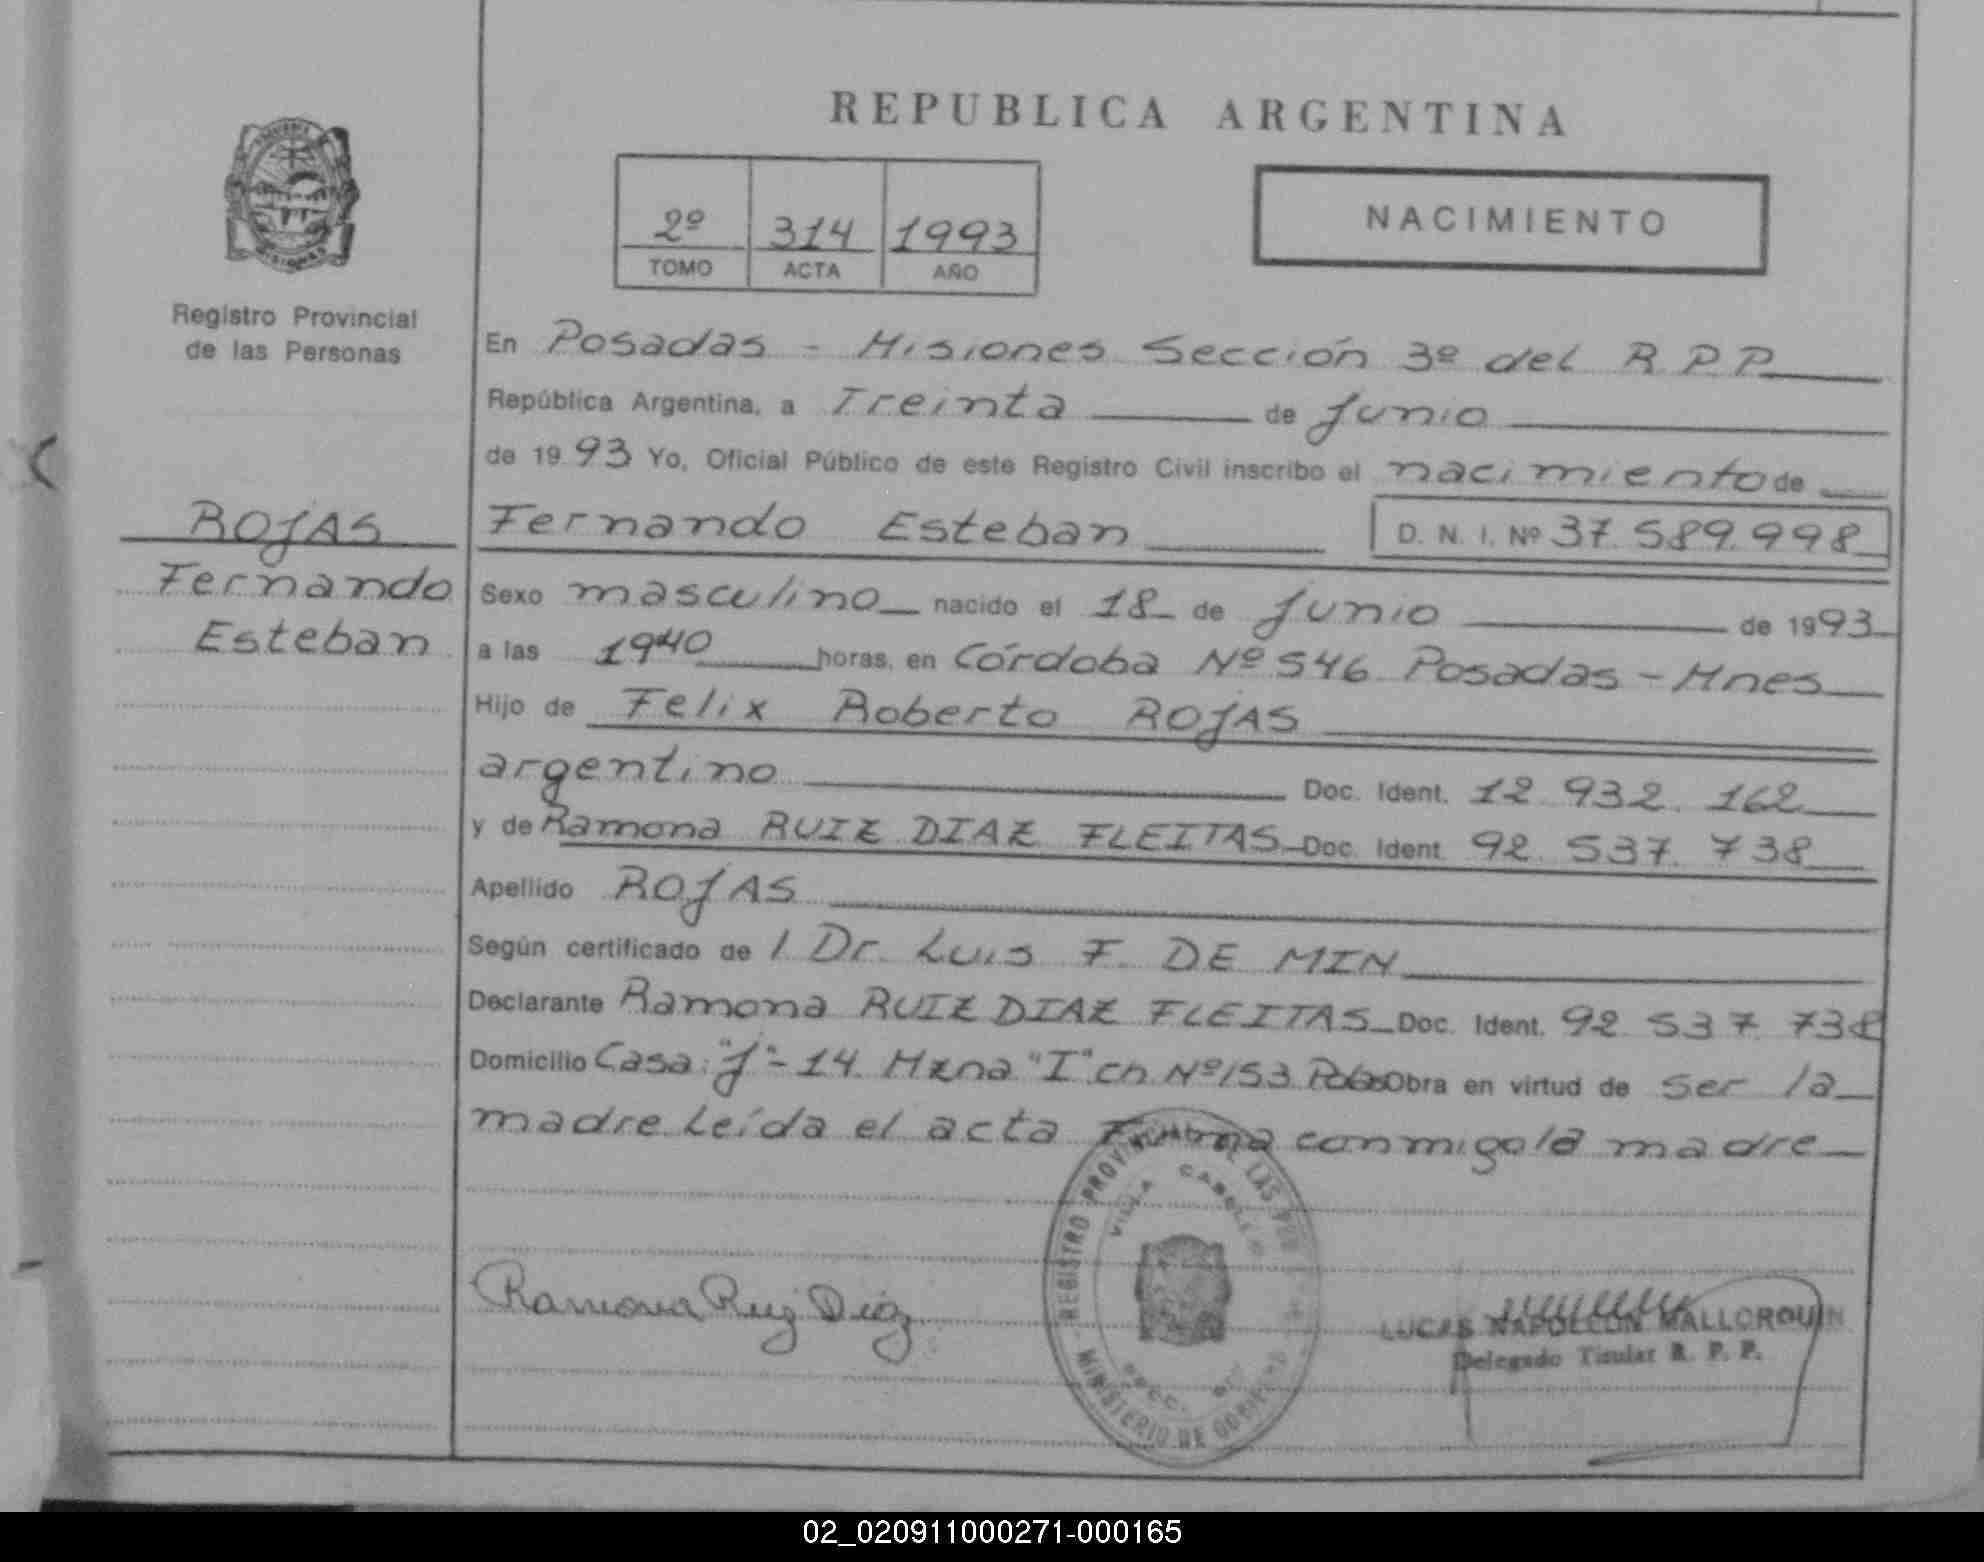 REPUBLICA ARGENTINA
2º 314 1993
TOMO ACTA AÑO
NACIMIENTO
Registro Provincial
de las Personas
En Posadas - Misiones Sección 3º del R P P
República Argentina, a Treinta de Junio
de 1993 Yo, Oficial Público de este Registro Civil inscribo el nacimiento de
ROJAS
Fernando
Esteban
Fernando Esteban D. N. I. Nº 37.589.998
Sexo masculino nacido el 18 de Junio de 1993
a las 1940 horas, en Córdoba Nº 546 Posadas - Mnes
Hijo de Felix Roberto ROJAS
argentino Doc. Ident. 12.932.162
y de Ramona RUIZ DIAZ FLEITAS Doc. Ident. 92.537.738
Apellido ROJAS
Según certificado de l Dr. Luis F. DE MIN
Declarante Ramona RUIZ DIAZ FLEITAS Doc. Ident. 92.537.738
Domicilio Casa: "J" - 14 Mzna "I" ch Nº 153 Obra en virtud de ser la
madre. Leída el acta Firma conmigo la madre
REGISTRO PROVINCIAL DE LAS
VILLA CABELLO
MINISTERIO DE GOBIERNO
Ramona Ruiz Diaz
LUCAS NAPOLEON MALLORQUIN
Delegado Titular R. P. P.
02_020911000271-000165